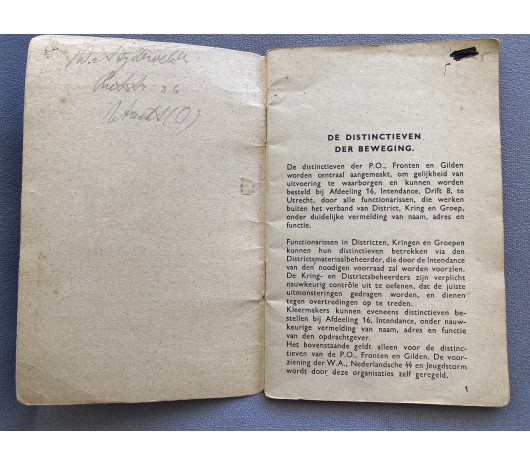 36
Utrecht (O)
DE DISTINCTIEVEN
DER BEWEGING.
De distinctieven der P.O., Fronten en Gilden
worden centraal aangemaakt, om gelijkheid van
uitvoering te waarborgen en kunnen worden
besteld bij Afdeeling 16, Intendance, Drift 8, te
Utrecht, door alle functionarissen, die werken
buiten het verband van District, Kring en Groep,
onder duidelijke vermelding van naam, adres en
functie.
Functionarissen in Districten, Kringen en Groepen
kunnen hun distinctieven betrekken via den
Districtsmateriaalbeheerder, die door de Intendance
van den noodigen voorraad zal worden voorzien.
De Kring- en Districtsbeheerders zijn verplicht
nauwkeurig contrôle uit te oefenen, dat de juiste
uitmonsteringen gedragen worden, en dienen
tegen overtredingen op te treden.
Kleermakers kunnen eveneens distinctieven be-
stellen bij Afdeeling 16, Intendance, onder nauw-
keurige vermelding van naam, adres en functie
van den opdrachtgever.
Het bovenstaande geldt alleen voor de distinc-
tieven van de P.O., Fronten en Gilden. De voor-
ziening der W.A., Nederlandsche ᛋᛋ en Jeugdstorm
wordt door deze organisaties zelf geregeld.
1